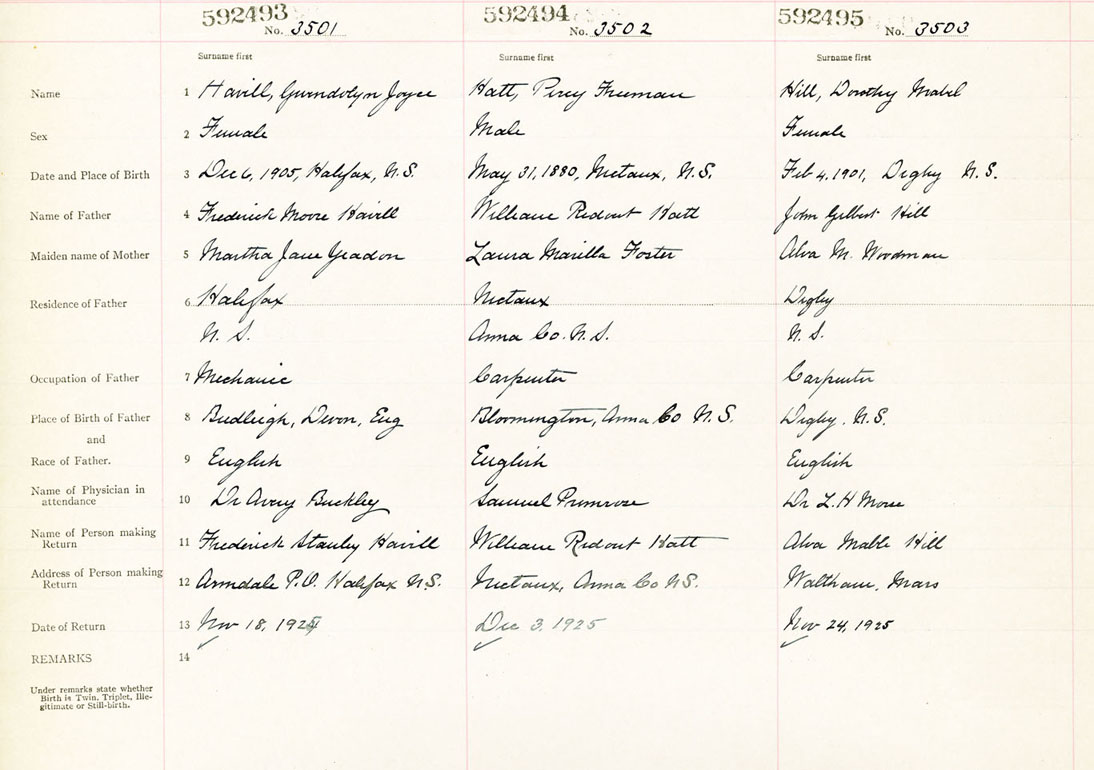 592493 592494 592495
No. 3501 No. 3502 No. 3503
Surname first Surname first Surname first
Name 1 Havill, Gwendolyn Joyce Hatt, Percy Freeman Hill, Dorothy Mabel
Sex 2 Female Male Female
Date and Place of Birth 3 Dec 6, 1905, Halifax, N.S. May 31, 1880, Nictaux, N.S. Feb 4, 1901, Digby N.S.
Name of Father 4 Frederick Moore Havill William Redout Hatt John Gilbert Hill
Maiden name of Mother 5 Martha Jane Yeadon Laura Marilla Foster Alva M. Woodman
Residence of Father 6 Halifax Nictaux Digby
N. S. Anna Co. N. S. N. S.
Occupation of Father 7 Mechanic Carpenter Carpenter
Place of Birth of Father 8 Budleigh, Devon, Eng Bloomington, Anna Co N. S. Digby. N. S.
and
Race of Father. 9 English English English
Name of Physician in
attendance 10 Dr Avery Buckley Samuel Primrose Dr L. H Morse
Name of Person making
Return 11 Frederick Stanley Havill William Redout Hatt Alva Mable Hill
Address of Person making
Return 12 Armdale P.O. Halifax N.S. Nictaux, Anna Co N.S. Waltham, Mass
Date of Return 13 Nov 18, 1925 Dec 3, 1925 Nov 24, 1925
REMARKS 14
Under remarks state whether
Birth is Twin, Triplet, Ille-
gitimate or Still-birth.